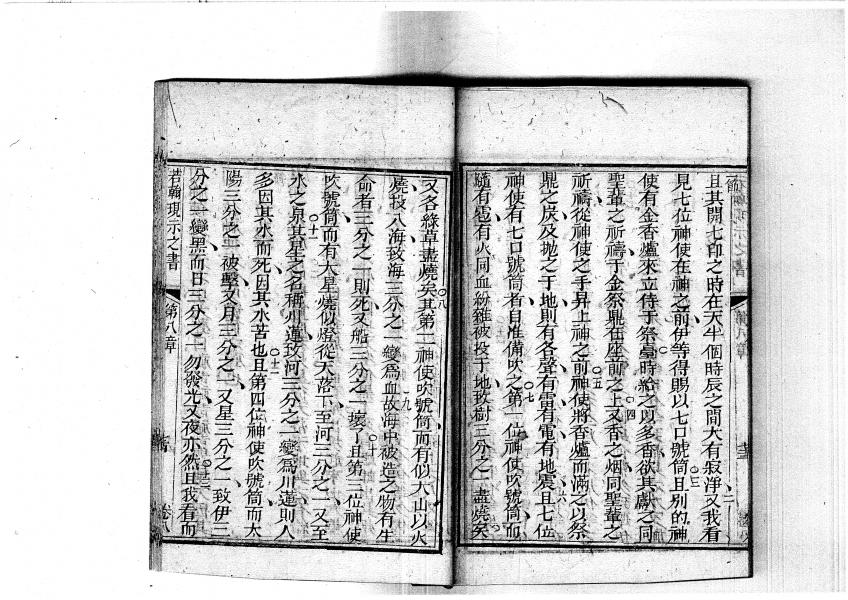 且其開七印之時在天半個時辰之間大有寂淨二又我看
見七位神使在神之前伊等得賜以七口號筒三且別的神
使有金香爐來立侍于祭臺時給之以多香欲其獻之同
聖輩之祈禱于金祭鼎在座前之上四又香之烟同聖輩之
祈禱從神使之手昇上神之前五神使將香爐而滿之以祭
鼎之炭及抛之于地則有各聲有雷有電有地震六且七位
神使有七口號筒者自准備吹之七第一位神使吹號筒而
隨有雹有火同血紛雜被投于地致樹三分之一盡燒矣
又各綠草盡燒矣八其第二神使吹號筒而有似大山以火
燒投入海致海三分之一變為血九故海中被造之物有生
命者三分之一則死又船三分之一壞了十且第三位神使
吹號筒而有大星燒似燈從天落下至河三分之一又至
水之泉十一其星之名稱川蓮致河三分之一變為川蓮則人
多因其水而死因其水苦也十二且第四位神使吹號筒而太
陽三分之一被擊又月三分之一又星三分之一致伊三
分之一變黑而日三分之一勿發光又夜亦然十三且我看而
若翰現示之書 第八章 卷八